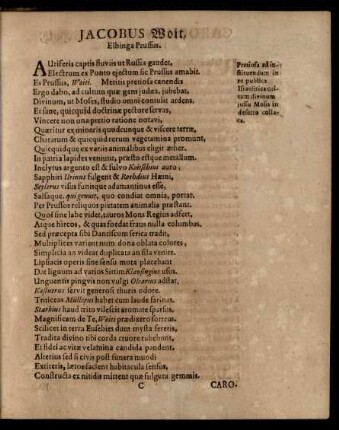 JACOBUS Woit,
Elbinga Prussus.
AUriferis captis fluviis ut Russia gaudet,
Electrum ex Ponto ejectum sic Prussus amabit.
Es Prussus, Woiti. Meritis pretiosa canendis
Ergo dabo, ad cultum quæ gem judex, jubebat,
Divinum, ut Moses, studio omni contulit ardens.
Et sine, quicquid doctrinæ pectore servas,
Vincere non una pretio ratione notavi,
Quæritur ex mineris quodcunque & viscere terræ,
Chararum & quicquid rerum vegetamina promunt,
Quicquid que ex variis animalibus eligit æther.
In patria lapides venimus, præsto estque metallum.
Inclytus argento est & fulvo auro,
Sapphiri Urinus fulgent & Hæmi,
Seylerus visus funitque adamantinus esse,
Salsaque, quigemnit, quo condiat omnia, portat.
Per Prussos reliquos plutatem animalia præstant.
Quos sine labe videt, tauros Mons Regius adfert,
Atque hircos, & quas fœdat fraus nulla columbas.
Sed præcepta sibi Dantiscum serica tradit,
Multiplices variout num dona oblata colores,
Simplicia an videat duplicata an fila venire.
Lipsiacis operis sine sensu mota placebant
Dat lignum ad varios Sittim Klansingius usus.
Unguentis pingvis non vulgi Olearius adstat.
Kesnerus servit generosi thuris odore.
Triticeas Mullerus habet cum laude farinas.
Starkius haud trito vilescit aromate sparsus.
Magnificam de Te, Woiti prædixero sortem.
Scilicet in terra Eusebies dum mysta fereris,
Tradita divino tibi corda cruore rubebunt,
Et fidei ac vitæ velamina candida pandent.
Alterius sed si civis post funera mundi
Extiteris, lætos facient habitacula sensus,
Constructa ex nitidis mittent quæ fulgura gemmis.
Pretiosa ad in-
stituendum in
re publica
Israëlitica cul-
tum divinum
jussu Mosis in
deserto colla-
ta.
C CARO.